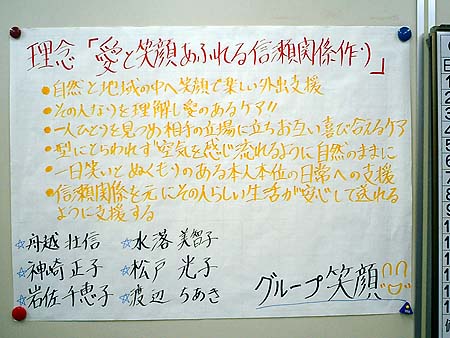 理念「愛と笑顔あふれる信頼関係作り」
●自然と地域の中へ笑顔で楽しい外出支援
●その人なりを理解し愛のあるケア!!
●一人ひとりを見つめ相手の立場に立ちお互い喜び合えるケア
●型にとらわれず空気を感じ流れるように自然のままに
●一日笑いとぬくもりのある本人本位の日常への支援
●信頼関係を元にその人らしい生活が安心して送れる
ように支援する
☆舟越 社信 ☆水落 美智子
☆神崎 正子 ☆松戸 光子
☆岩佐 千恵子 ☆渡辺 ちあき
グループ笑顔